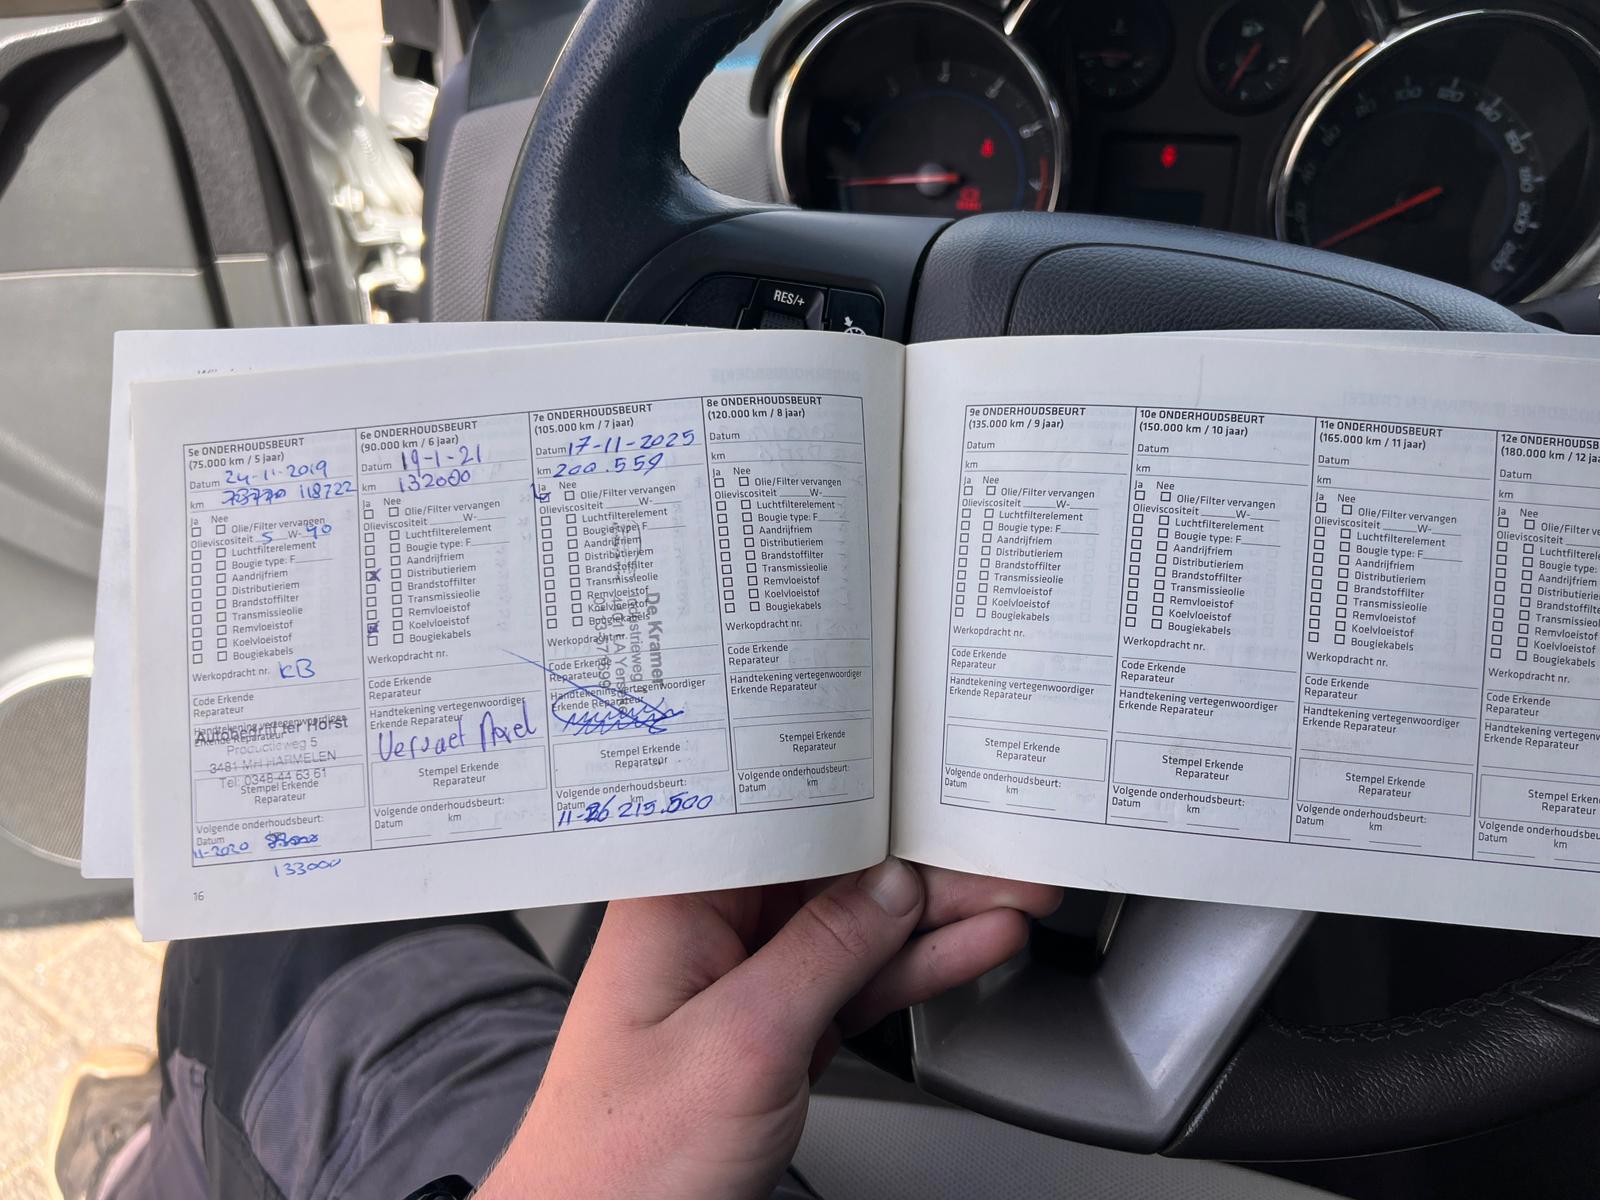 RES/+
5e ONDERHOUDSBEURT
(75.000 km / 5 jaar)
Datum 24-11-2019
km 118722
Ja Nee
Olie/Filter vervangen
Olieviscositeit 5 W- 40
Luchtfilterelement
Bougie type: F
Aandrijfriem
Distributieriem
Brandstoffilter
Transmissieolie
Remvloeistof
Koelvloeistof
Bougiekabels
Werkopdracht nr. KB
Code Erkende
Reparateur
Handtekening vertegenwoordiger
Erkende Reparateur
Autobedrijf ter Horst
Productieweg 5
3481 MH HARMELEN
Tel: 0348-44 63 61
Stempel Erkende
Reparateur
Volgende onderhoudsbeurt:
Datum km
11-2020
133000
16
6e ONDERHOUDSBEURT
(90.000 km / 6 jaar)
Datum 19-1-21
km 132000
Ja Nee
Olie/Filter vervangen
Olieviscositeit W-
Luchtfilterelement
Bougie type: F
Aandrijfriem
Distributieriem
Brandstoffilter
Transmissieolie
Remvloeistof
Koelvloeistof
Bougiekabels
Werkopdracht nr.
Code Erkende
Reparateur
Handtekening vertegenwoordiger
Erkende Reparateur
Stempel Erkende
Reparateur
Volgende onderhoudsbeurt:
Datum km
7e ONDERHOUDSBEURT
(105.000 km / 7 jaar)
Datum 17-11-2025
km 200.559
Ja Nee
Olie/Filter vervangen
Olieviscositeit W-
Luchtfilterelement
Bougie type: F
Aandrijfriem
Distributieriem
Brandstoffilter
Transmissieolie
Remvloeistof
Koelvloeistof
Bougiekabels
Werkopdracht nr.
De Kramer
Industrieweg
Code Erkende
Reparateur
Handtekening vertegenwoordiger
Erkende Reparateur
Stempel Erkende
Reparateur
Volgende onderhoudsbeurt:
Datum km
11-26 215.500
8e ONDERHOUDSBEURT
(120.000 km / 8 jaar)
Datum
km
Ja Nee
Olie/Filter vervangen
Olieviscositeit W-
Luchtfilterelement
Bougie type: F
Aandrijfriem
Distributieriem
Brandstoffilter
Transmissieolie
Remvloeistof
Koelvloeistof
Bougiekabels
Werkopdracht nr.
Code Erkende
Reparateur
Handtekening vertegenwoordiger
Erkende Reparateur
Stempel Erkende
Reparateur
Volgende onderhoudsbeurt:
Datum km
9e ONDERHOUDSBEURT
(135.000 km / 9 jaar)
Datum
km
Ja Nee
Olie/Filter vervangen
Olieviscositeit W-
Luchtfilterelement
Bougie type: F
Aandrijfriem
Distributieriem
Brandstoffilter
Transmissieolie
Remvloeistof
Koelvloeistof
Bougiekabels
Werkopdracht nr.
Code Erkende
Reparateur
Handtekening vertegenwoordiger
Erkende Reparateur
Stempel Erkende
Reparateur
Volgende onderhoudsbeurt:
Datum km
10e ONDERHOUDSBEURT
(150.000 km / 10 jaar)
Datum
km
Ja Nee
Olie/Filter vervangen
Olieviscositeit W-
Luchtfilterelement
Bougie type: F
Aandrijfriem
Distributieriem
Brandstoffilter
Transmissieolie
Remvloeistof
Koelvloeistof
Bougiekabels
Werkopdracht nr.
Code Erkende
Reparateur
Handtekening vertegenwoordiger
Erkende Reparateur
Stempel Erkende
Reparateur
Volgende onderhoudsbeurt:
Datum km
11e ONDERHOUDSBEURT
(165.000 km / 11 jaar)
Datum
km
Ja Nee
Olie/Filter vervangen
Olieviscositeit W-
Luchtfilterelement
Bougie type: F
Aandrijfriem
Distributieriem
Brandstoffilter
Transmissieolie
Remvloeistof
Koelvloeistof
Bougiekabels
Werkopdracht nr.
Code Erkende
Reparateur
Handtekening vertegenwoordiger
Erkende Reparateur
Stempel Erkende
Reparateur
Volgende onderhoudsbeurt:
Datum km
12e ONDERHOUDSB
(180.000 km / 12 ja
Datum
km
Ja Nee
Olie/Filter ve
Olieviscositeit
Luchtfiltere
Bougie type:
Aandrijfriem
Distributierie
Brandstoffilte
Transmissieol
Remvloeistof
Koelvloeistof
Bougiekabels
Werkopdracht nr.
Code Erkende
Reparateur
Handtekening vertegenw
Erkende Reparateur
Stempel Erken
Reparateur
Volgende onderhoudsbe
Datum km